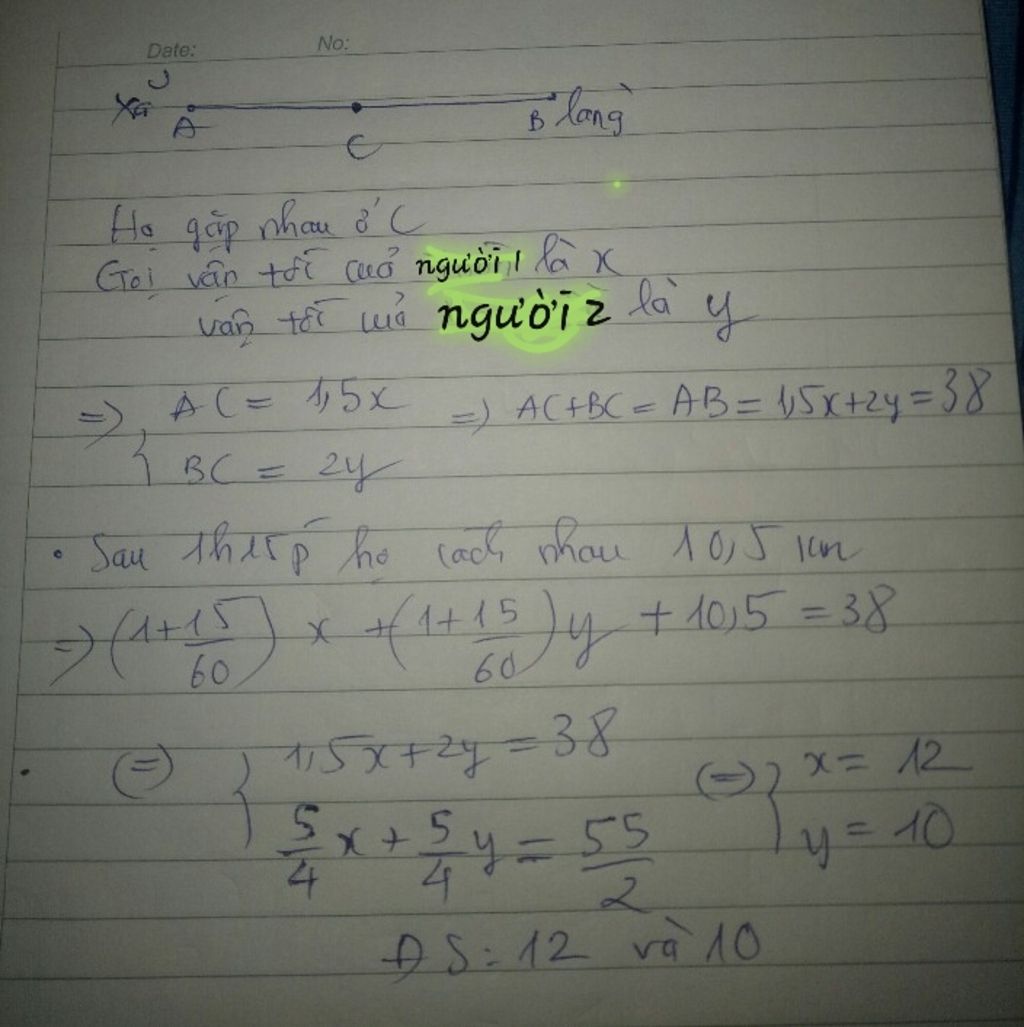 Date: No:
Xã A C B làng
Họ gặp nhau ở C
Gọi vận tốc của người 1 là x
vận tốc của người 2 là y
=> { AC = 1,5x => AC+BC = AB = 1,5x+2y = 38
BC = 2y
• Sau 1h15p họ cách nhau 10,5 km
=> (1+15/60) x + (1+15/60) y + 10,5 = 38
(=) { 1,5x+2y = 38 (=) { x = 12
5/4x + 5/4y = 55/2 y = 10
ĐS: 12 và 10